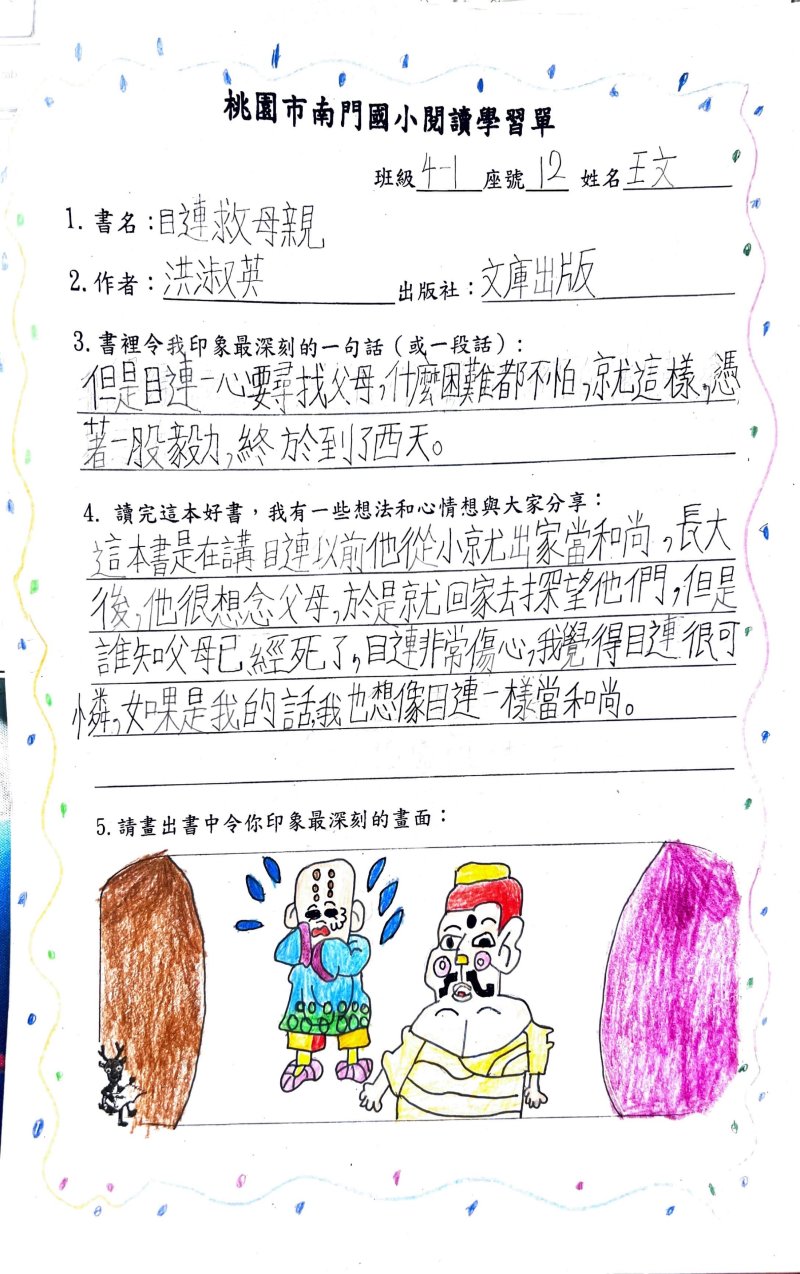 桃園市南門國小閱讀學習單
班級4-1座號12姓名王文
1.書名：目連救母親
2.作者：洪淑英 出版社：文庫出版
3.書裡令我印象最深刻的一句話（或一段話）：
但是目連一心要尋找父母，什麼困難都不怕，就這樣，憑
著一股毅力，終於到了西天。
4. 讀完這本好書，我有一些想法和心情想與大家分享：
這本書是在講目連以前他從小就出家當和尚，長大
後，他很想念父母，於是就回家去探望他們，但是
誰知父母已經死了，目連非常傷心，我覺得目連很可
憐，如果是我的話，我也想像目連一樣當和尚。
5.請畫出書中令你印象最深刻的畫面：